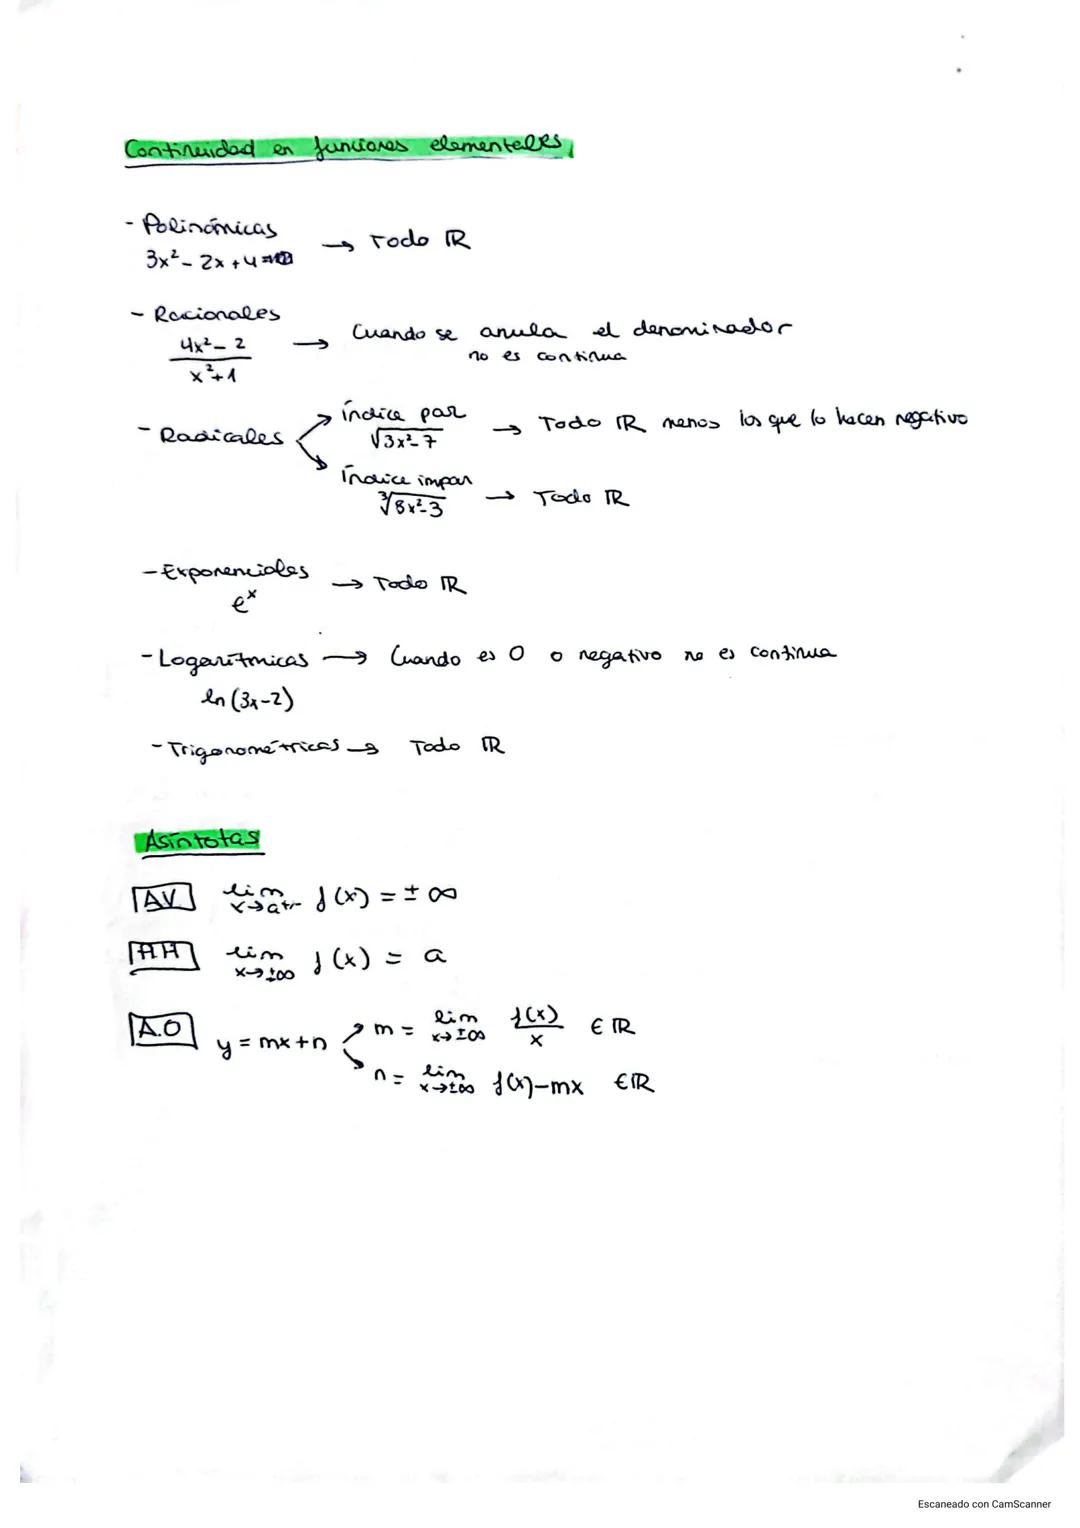 Continuidad en funciones elementales
- Polinómicas → Todo ℝ
3x² - 2x + 4
- Racionales → Cuando se anula el denominador
4x² - 2 / x² + 1 no es continua
- Radicales índice par → Todo ℝ menos los que lo hacen negativo
√3x²-7
índice impar → Todo ℝ
³√8x²-3
- Exponenciales → Todo ℝ
eˣ
- Logarítmicas → Cuando es 0 o negativo no es continua
ln (3x-2)
- Trigonométricas → Todo ℝ
Asíntotas
AV lim x→a+- f(x) = ± ∞
AH lim x→±∞ f(x) = a
A.O y = mx+n m = lim x→±∞ f(x)/x ∈ ℝ
n = lim x→±∞ f(x)-mx ∈ ℝ
Escaneado con CamScanner